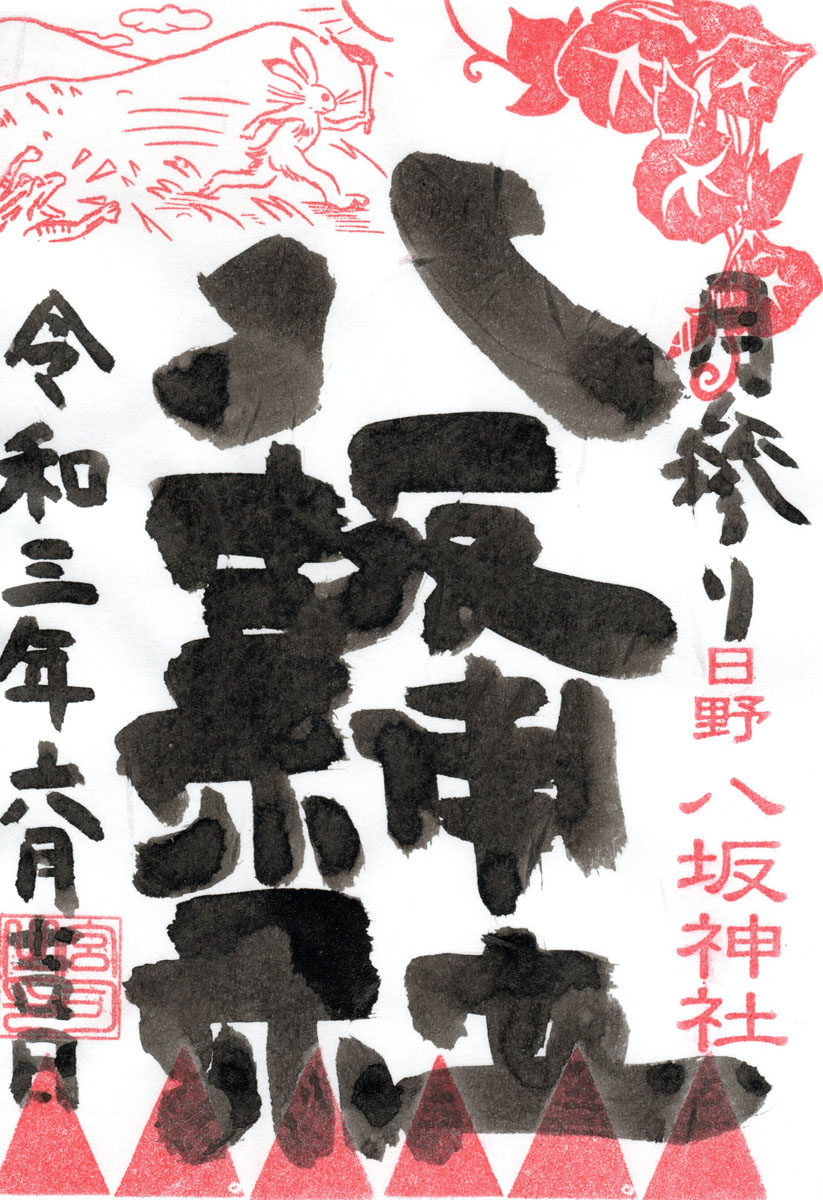 月参り
日野 八坂神社
八坂神社
令和三年六月吉日